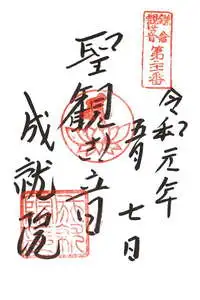 鎌倉
観世音
第廿一番
令和元年
五月七日
聖観世音
成就院